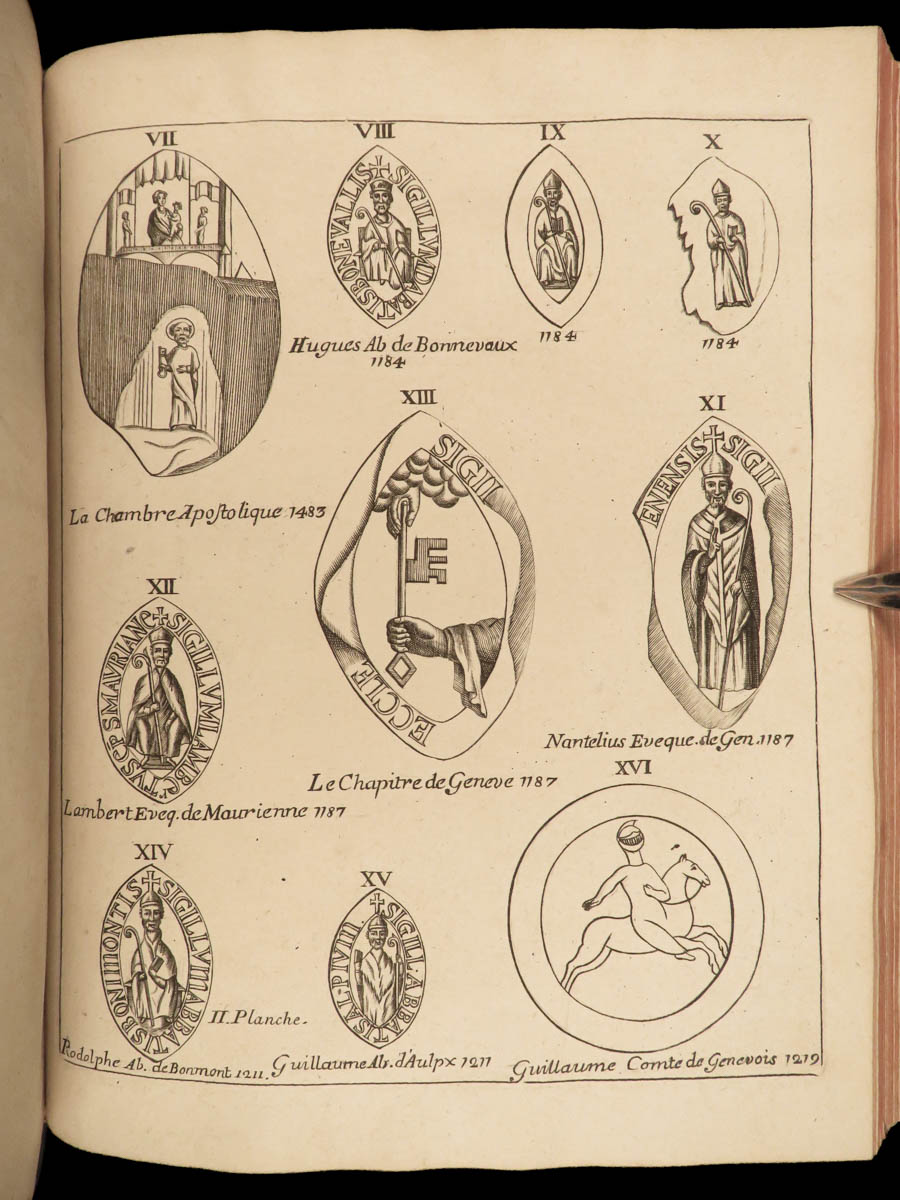 VII
La Chambre Apostolique 1483
VIII
SIGILLVM ABATIS BONEVALLIS
Hugues Ab de Bonnevaux
1184
IX
1184
X
1184
XIII
SIGIL
ECCLE
Le Chapitre de Geneve 1187
XI
SIGIL
ENENSIS
Nantelius Eveque de Gen. 1187
XII
SIGILLVM LAMB
Lambert Eveq. de Maurienne 1187
XIV
SIGILLVM ABBATIS BONIMONTIS
Rodolphe Ab. de Bonmont 1211.
II. Planche.
XV
SIGILL ABBATIS ALPIVM
Guillaume Ab. d'Aulpx 1211
XVI
Guillaume Comte de Genevois 1219